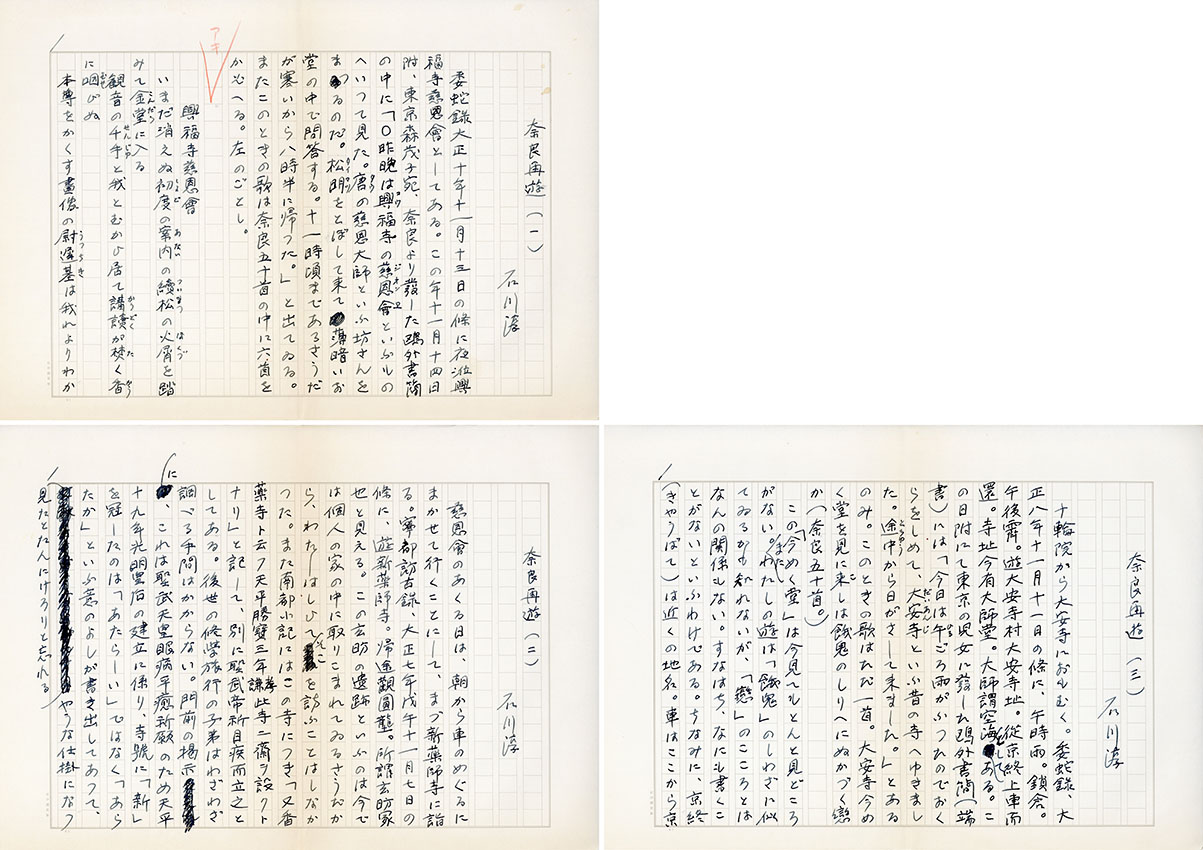 奈良再遊(一)
石川淳
委蛇錄大正十年十一月十三日の條に夜涖興
福寺慈恩會としてある。この年十一月十四日
附、東京森茂子宛、奈良より發した鷗外書簡
の中に「〇昨晩は興福寺の慈恩會といふもの
へいつて見た。唐の慈恩大師といふ坊さんを
まつるのだ。松明をとぼして来て薄暗いお
堂の中で問答する。十一時頃まであるさうだ
が寒いから八時半に帰つた。」と出てゐる。
またこのときの歌は奈良五十首の中に六首を
かぞへる。左のごとし。
アキ
興福寺慈恩會
いまだ消えぬ初度の案内の續松の火屑を踏
みて金堂に入る
觀音の千手と我とむかひ居て講讀が焚く香
に咽びぬ
本尊をかくす畫像の尉遲基は我れよりわか
奈良再遊(二)
石川淳
慈恩會のあくる日は、朝から車のめぐるに
まかせて行くことにして、まづ新藥師寺に詣
る。寧都訪古錄、大正七年戊午十一月七日の
條に、遊新藥師寺。帰途觀圓龕。所謂玄昉冢
也と見える。この玄昉の遺跡といふのは今で
は個人の家の中に取りこまれてゐるさうだか
ら、わたしはしひてそこを訪ふことはしなか
つた。また南部小記にはこの寺につき「又香
藥寺ト云フ天平勝寶三年孝謙此寺ニ齋ヲ設クト
ナリ」と記して、別に聖武帝新目疾而立之と
してある。後世の修學旅行の子弟はわざわざ
調べる手間はかからない。門前の掲示
に、これは聖武天皇眼病平癒祈願のため天平
十九年光明皇后の建立に係り、寺號に「新」
を冠したのは「あたらしい」ではなく「あら
たか」といふ意のよしが書き出してあつて、
見たとたんにけろりと忘れるやうな仕掛になつ
奈良再遊(三)
石川淳
十輪院から大安寺におもむく。委蛇錄、大
正八年十一月十一日の條に、午時雨。鎖倉。
午後霽。遊大安寺村大安寺址。從京終上車而
還。寺址今有大師堂。大師謂空海としてある。こ
の日附にて東京の児女に發した鷗外書簡(端
書)には「今日は午ごろ雨がふつたのでおく
らをしめて、大安寺といふ昔の寺へゆきまし
た。途中から日がさして来ました。」とある
のみ。このときの歌はただ一首。大安寺今め
く堂を見に来しは餓鬼のしりへにぬかづく戀
か(奈良五十首。)
この「今めく堂」は今見てもとんと見どころ
がない。わたしの遊はまた「餓鬼」のしわざに似
てゐるかも知れないが、「戀」のこころとは
なんの關係もない。すなはち、なにも書くこ
とがないといふわけである。ちなみに、京終
(きやうばて)は近くの地名。車はここから京